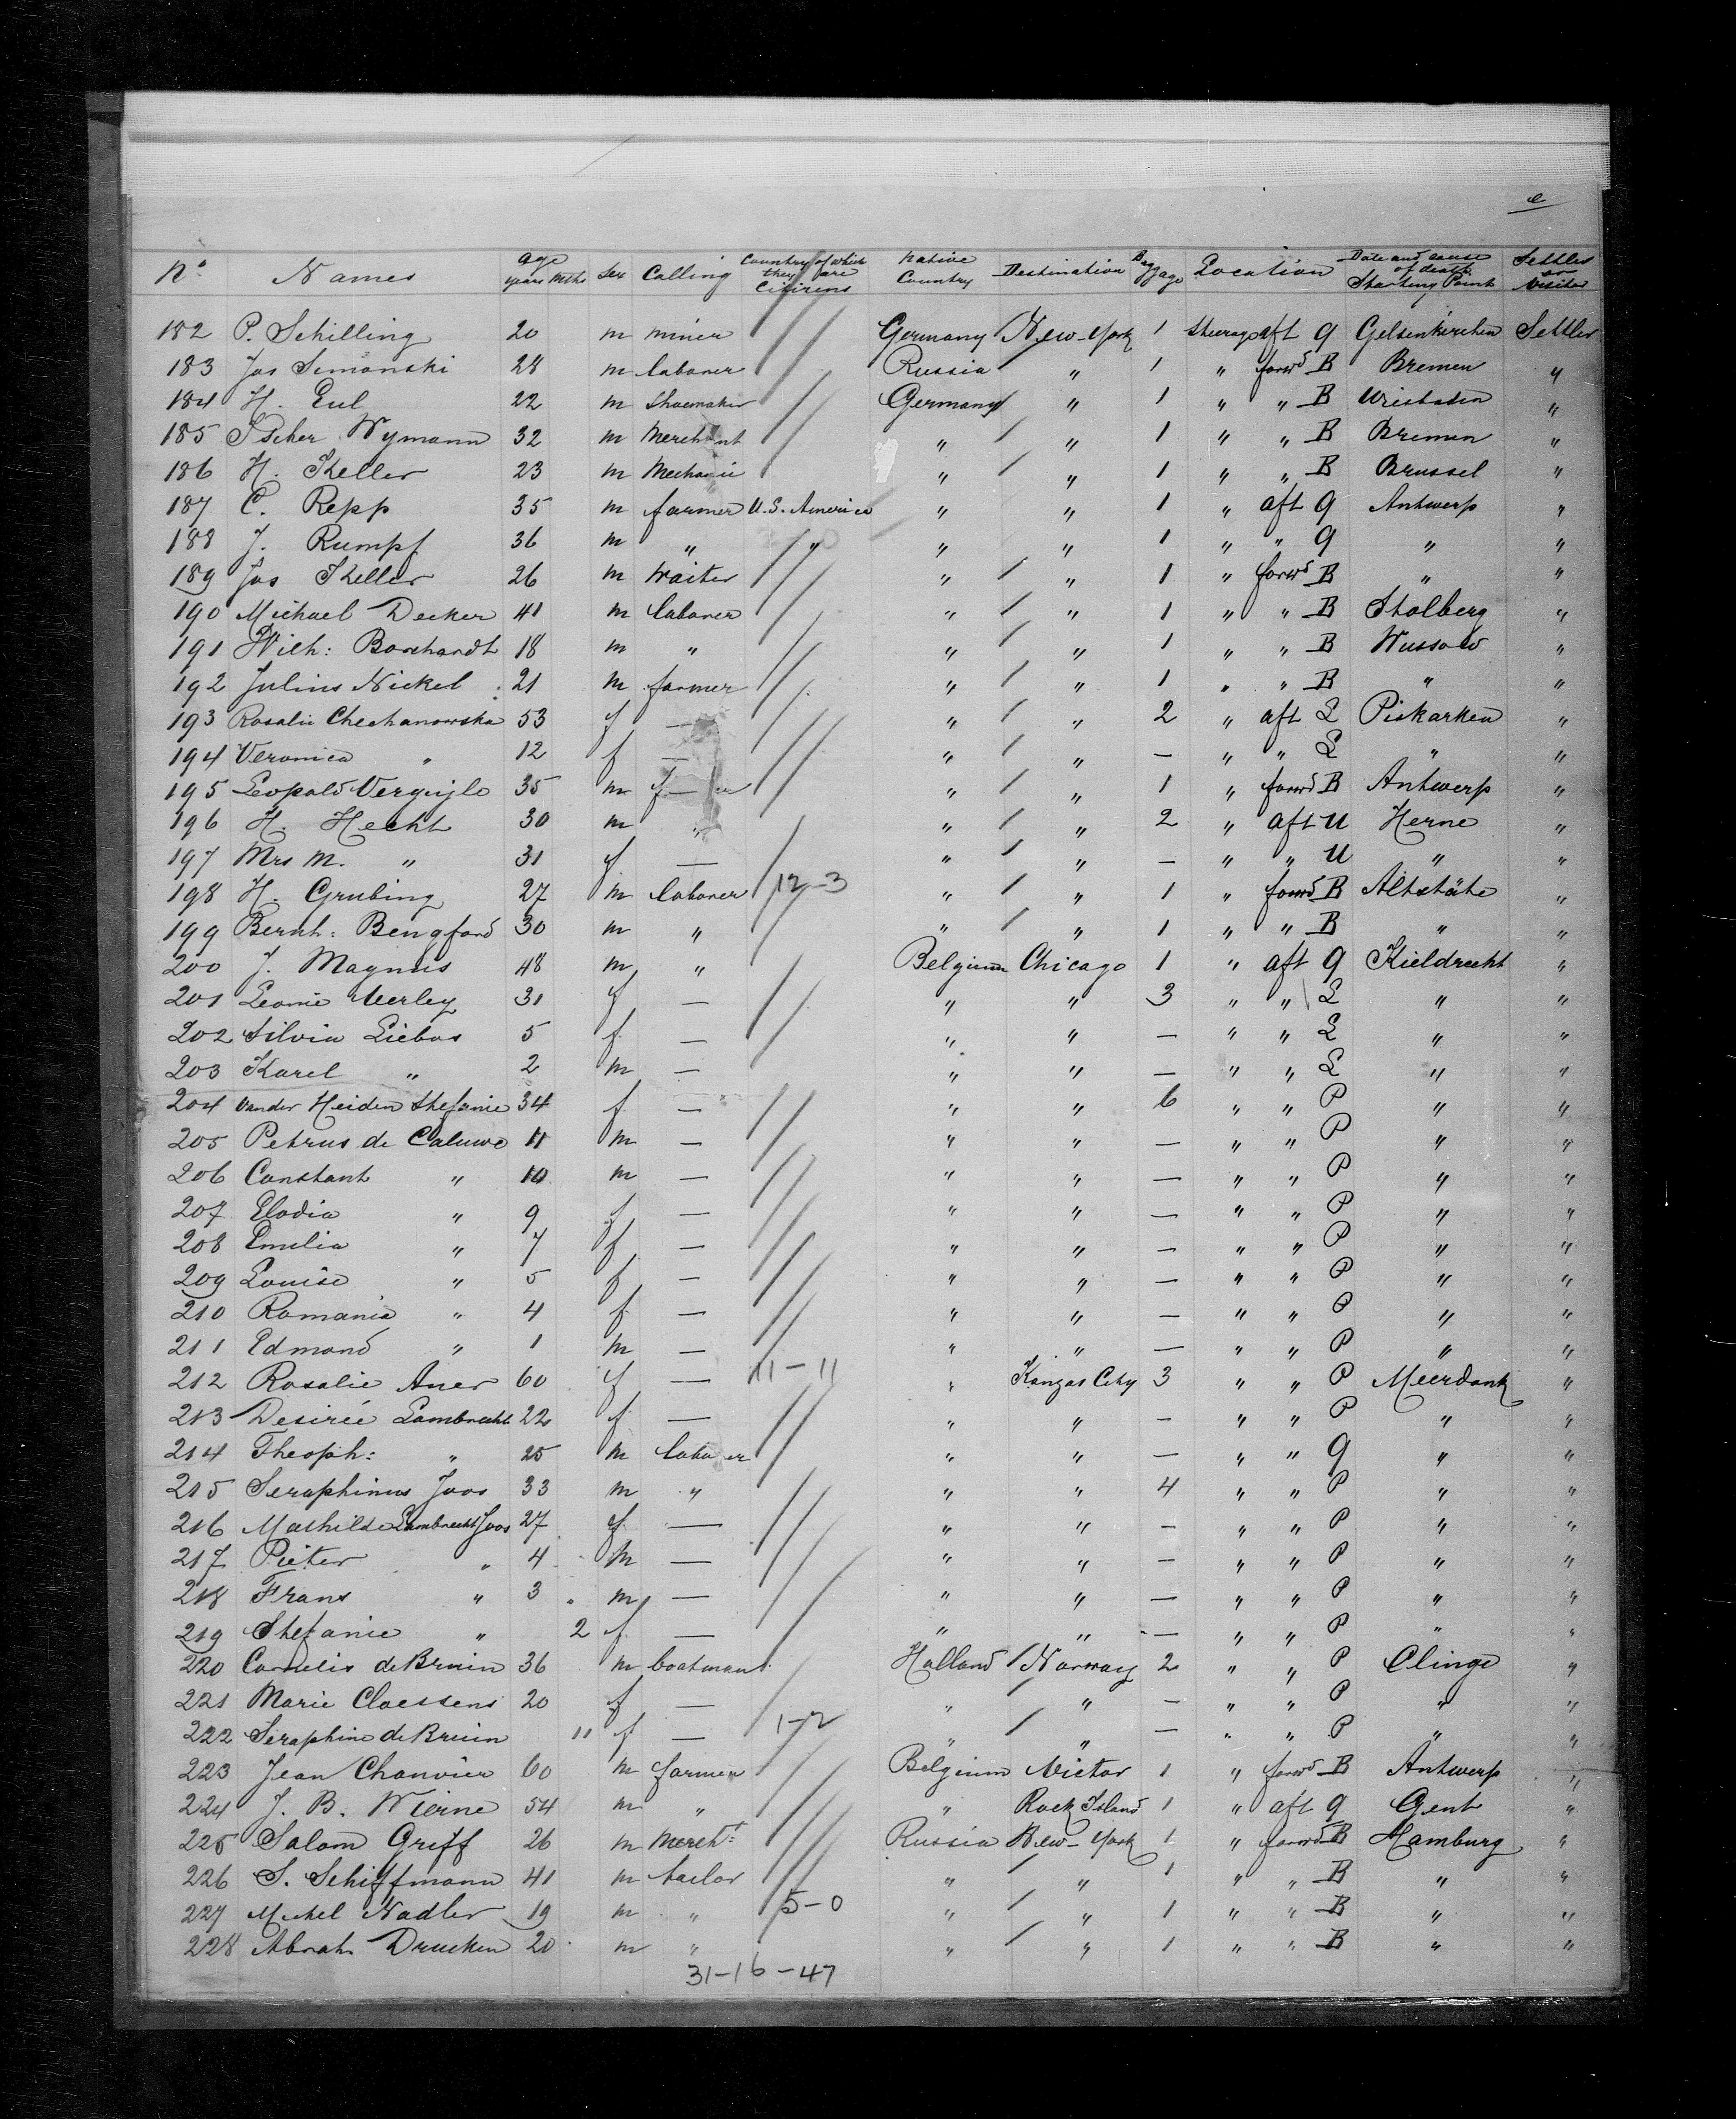 e
No. Names age years Mths Sex Calling Country of which they are Citizens Native Country Destination Baggage Location Date and cause of death Starting Point Settler or Visitor
182 P. Schilling 20 m miner Germany New-York 1 Steerage aft G Gelsenkirchen Settler
183 Jos Simonski 28 m laborer Russia " 1 " forwd B Bremen "
184 H. Eul 22 m Shoemaker Germany " 1 " " B "
185 Wymann 32 m Merchant " " 1 " " B Bremen "
186 H. Keller 23 m Mechanic " " 1 " " B Brussel "
187 C. Repp 35 m farmer U.S. America " " 1 " aft G Antwerp "
188 J. Rumpf 36 m " " " " 1 " " G " "
189 Jos Keller 26 m Waiter " " 1 " forwd B " "
190 Michael Decker 41 m laborer " " 1 " " B Stolberg "
191 Wilh: Borchardt 18 m " " " 1 " " B Wussow "
192 Julius Nickel 21 m farmer " " 1 " " B " "
193 Rosalie Chechanowska 53 f — " " 2 " aft L Piskarken "
194 Veronica " 12 f — " " — " " L " "
195 Leopold Verguylo 35 m " " 1 " forwd B Antwerp "
196 H. Hecht 30 m " " " 2 " aft U Herne "
197 Mrs M. " 31 f — " " — " " U " "
198 H. Grubing 27 m laborer 12-3 " " 1 " forwd B Altstäte "
199 Bernh: Bengford 30 m " " " 1 " " B " "
200 J. Magnus 48 m " Belgium Chicago 1 " aft G Kieldrecht "
201 Leonie Meerley 31 f — " " 3 " " L " "
202 Silvia Liebas 5 f — " " — " " L " "
203 Karel " 2 m — " " — " " L " "
204 Vander Heiden Stefanie 34 f — " " 6 " " P " "
205 Petrus de Caluwe 11 m — " " — " " P " "
206 Constant " 10 m — " " — " " P " "
207 Elodia " 9 f — " " — " " P " "
208 Emilia " 7 f — " " — " " P " "
209 Louise " 5 f — " " — " " P " "
210 Romania " 4 f — " " — " " P " "
211 Edmond " 1 m — " " — " " P " "
212 Rosalie Auer 60 f — 11-11 " Kanzas City 3 " " P Meerdonk "
213 Desirée Lambrecht 22 f — " " — " " P " "
214 Theoph: " 25 m laborer " " — " " G " "
215 Seraphinus Joos 33 m " " " 4 " " P " "
216 Mathilde Lambrecht Joos 27 f — " " — " " P " "
217 Pieter " 4 m — " " — " " P " "
218 Frans " 3 m — " " — " " P " "
219 Stefanie " 2 f — " " — " " P " "
220 Cornelis de Bruin 36 m boatman Holland Norway 2 " " P Clinge "
221 Marie Claessens 20 f — " " — " " P " "
222 Seraphine de Bruin 11 f — 1-2 " " — " " P " "
223 Jean Chanvier 60 m farmer Belgium Victor 1 " forwd B Antwerp "
224 J. B. Wierne 54 m " " Rock Island 1 " aft G Gent "
225 Salom Griff 26 m Mercht: Russia New-York 1 " forwd B Hamburg "
226 S. Schiffmann 41 m tailor " " 1 " " B " "
227 Michel Nadler 19 m " 5-0 " " 1 " " B " "
228 Abrah Drucken 20 m " " " 1 " " B " "
31-16-47